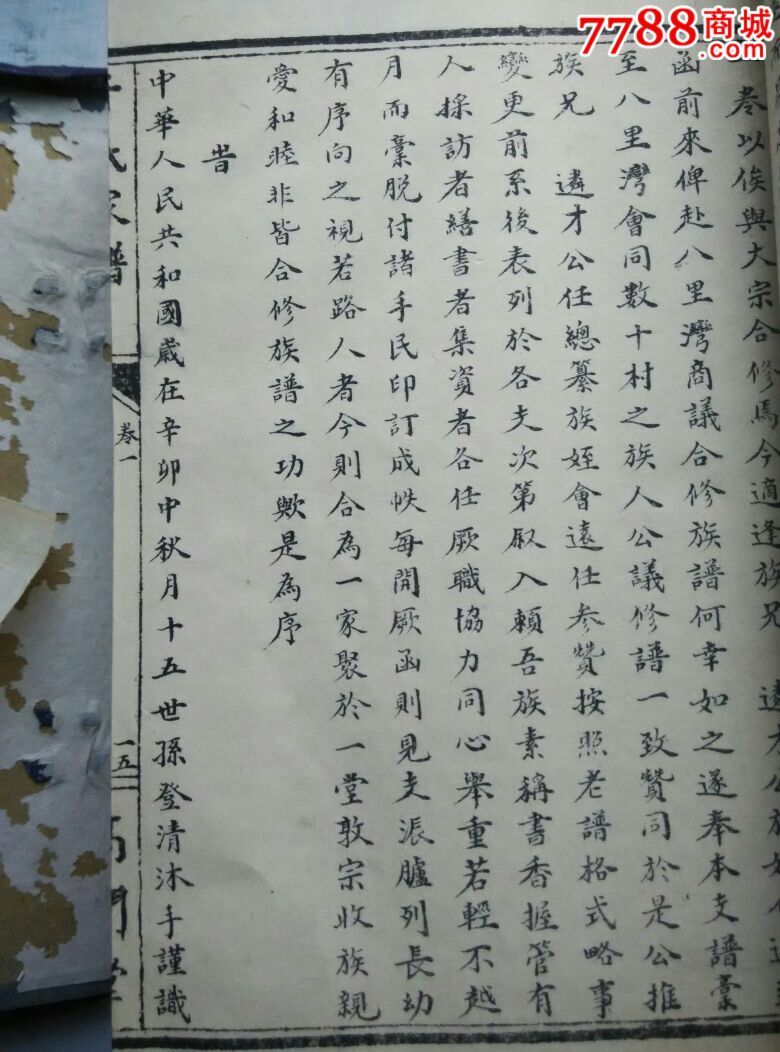 7788商城
卷以俟與大宗合修焉今適逢族兄 遠才公族
函前來俾赴八里灣商議合修族譜何幸如之遂奉本支譜稾
至八里灣會同數十村之族人公議修譜一致贊同於是公推
族兄 遴才公任總纂族姪會遠任参贊按照老譜格式略事
變更前系後表列於各支次第叙入賴吾族素稱書香握管有
人採訪者繕書者集資者各任厥職協力同心舉重若輕不越
月而稾脱付諸手民印訂成帙每開厥函則見支派臚列長幼
有序向之視若路人者今則合為一家聚於一堂敦宗收族親
愛和睦非皆合修族譜之功歟是為序
旹
中華人民共和國歲在辛卯中秋月十五世孫登清沐手謹識
氏家譜
卷一
一五